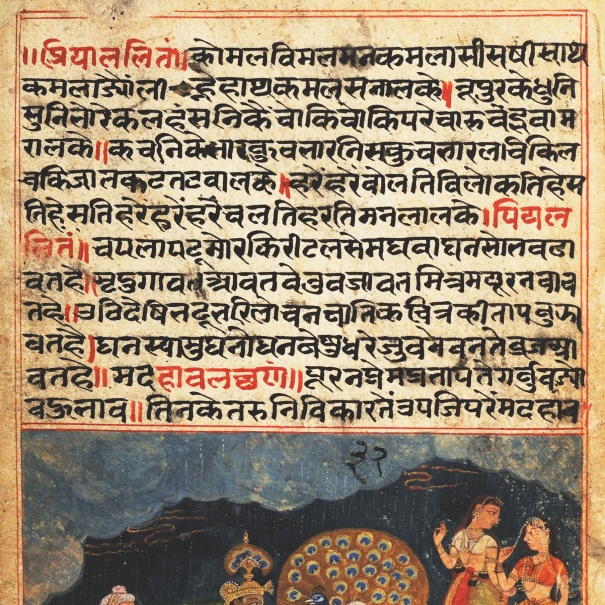 ॥प्रियाललितं॥कोमलविमलमनकमलासीसषीसाथ
कमलाज्यौंली हेहाथकमलसनालके॥नूपुरकेधुनि
सुनिभोरेकलहंसनिकैचौकिचौकिपरैचारुचेंडवाम
रालके॥कचनिकेभारकुचभारनिसकुचभारलचिकिल
चकिजातकटतटवालके॥हरेंहरेंबोलतिविलोकतिहेम
तिहेसतिहरेंहरेंहरेंचलतिहरतिमनलालके।पियल
लितं॥चपलापटूमोरकिरीटलसेमघवाघनसोभवढा
वतहै॥मृदुगावतआवतवेनुवजावतमित्रमयूरनचाव
तहै॥उठिदेषिभटूभरिलोचनचातिकचित्रकीतापवुझा
वतहै।घनस्यामुघनोघनवेषुधरेजुवनेवनतेव्रजआ
वतहै॥मदहावलछण॥पूरनप्रेमप्रतापतेगर्वुवढ्यो
वऊभाव॥तिनकेतरुनिविकारतेंउपजिपरेंमदहाव
३२